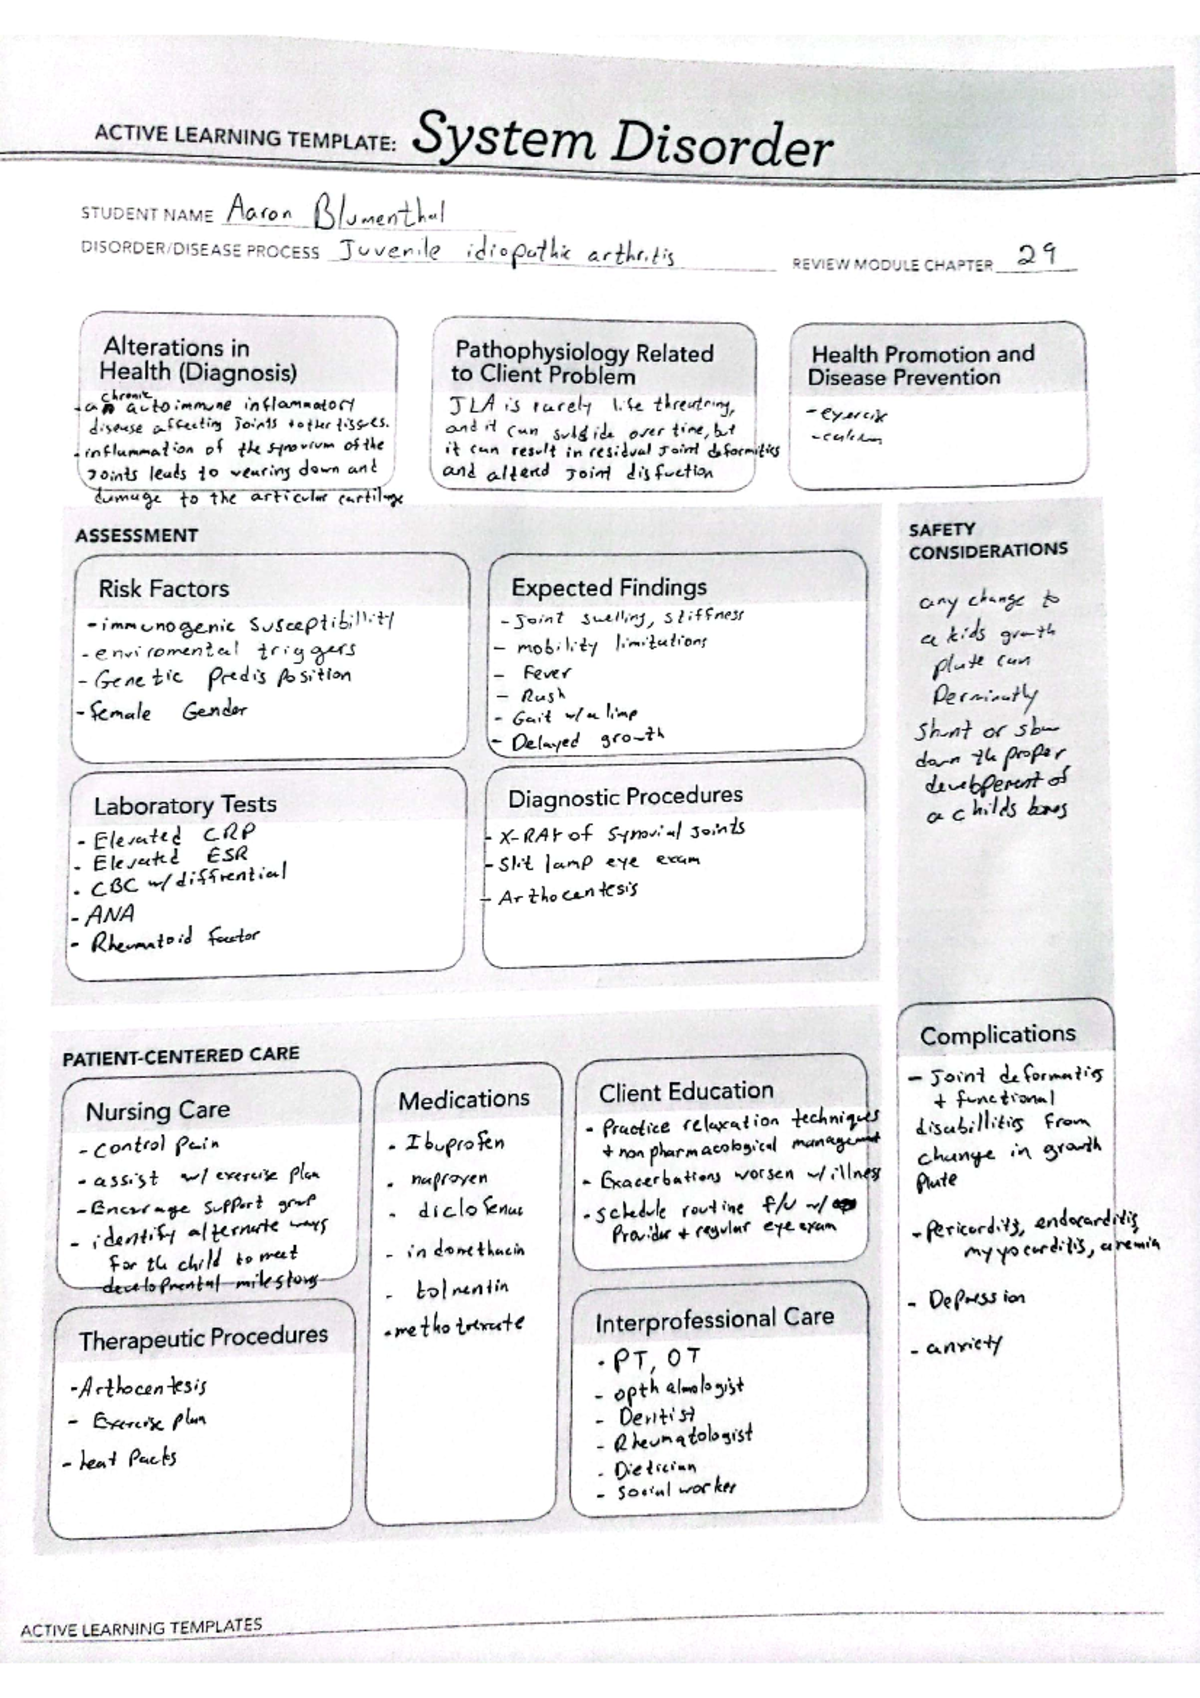 ACTIVE LEARNING TEMPLATE: System Disorder
STUDENT NAME Aaron Blumenthal
DISORDER/DISEASE PROCESS Juvenile idiopathic arthritis
REVIEW MODULE CHAPTER 29
Alterations in
Health (Diagnosis)
chronic
- an autoimmune inflammatory
disease affecting joints + other tissues.
- inflammation of the synovium of the
Joints leads to wearing down and
damage to the articular cartilage
Pathophysiology Related
to Client Problem
JLA is rarely life threatning,
and it can subside over time, but
it can result in residual joint deformities
and alterd joint disfuction
Health Promotion and
Disease Prevention
- exercise
- calcium
ASSESSMENT
Risk Factors
- immunogenic susceptibillity
- enviromental triggers
- Genetic Predisposition
- female Gender
Expected Findings
- Joint swelling, stiffness
- mobility limitations
- Fever
- Rash
- Gait w/ a limp
- Delayed growth
Laboratory Tests
- Elevated CRP
- Elevated ESR
- CBC w/ diffrential
- ANA
- Rheumatoid factor
Diagnostic Procedures
- X-RAY of Synovial Joints
- Slit lamp eye exam
- Arthocentesis
SAFETY
CONSIDERATIONS
any change to
a kids growth
plate can
Perminatly
Shunt or slow
down the proper
development of
a childs bones
PATIENT-CENTERED CARE
Nursing Care
- control pain
- assist w/ exercise plan
- Encourage support group
- identify alternate ways
for the child to meet
developmental milestons
Medications
- Ibuprofen
- naproxen
- diclofenac
- indomethacin
- tolmentin
- methotrexate
Client Education
- Practice relaxation techniques
+ nonpharmacological management
- Exacerbations worsen w/ illness
- schedule routine f/u w/
Provider + regular eye exam
Therapeutic Procedures
- Arthocentesis
- Exercise plan
- heat Packs
Interprofessional Care
- PT, OT
- opthalmologist
- Dentist
- Rheumatologist
- Dietician
- social worker
Complications
- Joint deformatics
+ functional
disabillities from
change in growth
Plate
- Pericarditis, endocarditis
myyocarditis, anemia
- Depression
- anxiety
ACTIVE LEARNING TEMPLATES